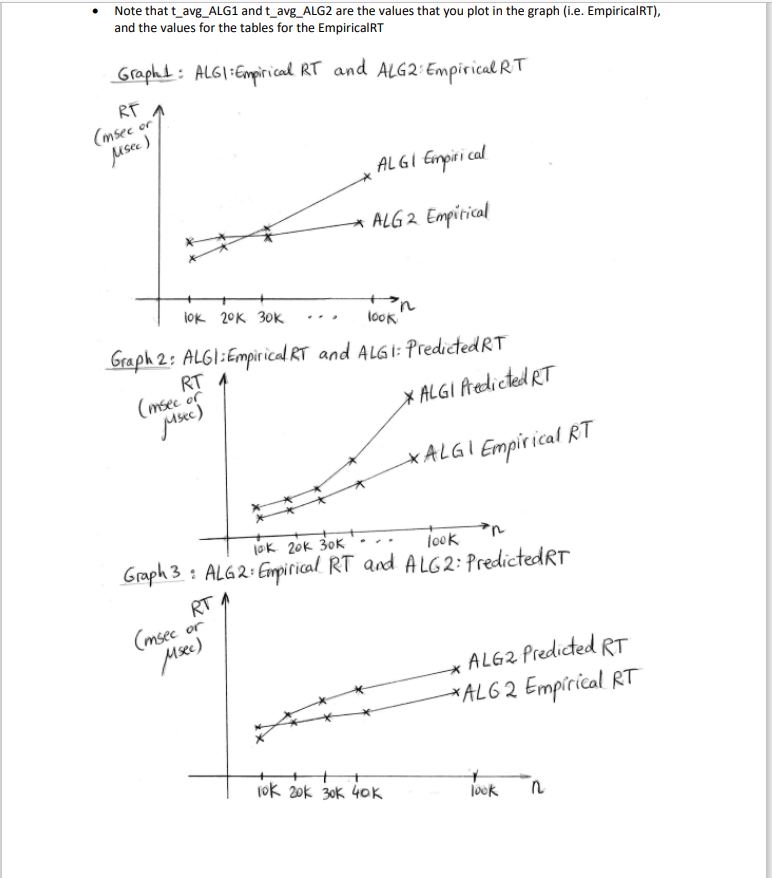 • Note that t_avg_ALG1 and t_avg_ALG2 are the values that you plot in the graph (i.e. EmpiricalRT),
and the values for the tables for the EmpiricalRT
Graph1: ALG1:Empirical RT and ALG2:Empirical RT
RT
(msec or
μsec)
ALG1 Empirical
ALG2 Empirical
n
10K 20K 30K ... 100K
Graph 2: ALG1:Empirical RT and ALG1: PredictedRT
RT
(msec or
μsec)
ALG1 Predicted RT
ALG1 Empirical RT
n
10K 20K 30K ... 100K
Graph 3: ALG2: Empirical RT and ALG2: PredictedRT
RT
(msec or
μsec)
ALG2 Predicted RT
ALG2 Empirical RT
10K 20K 30K 40K 100K n